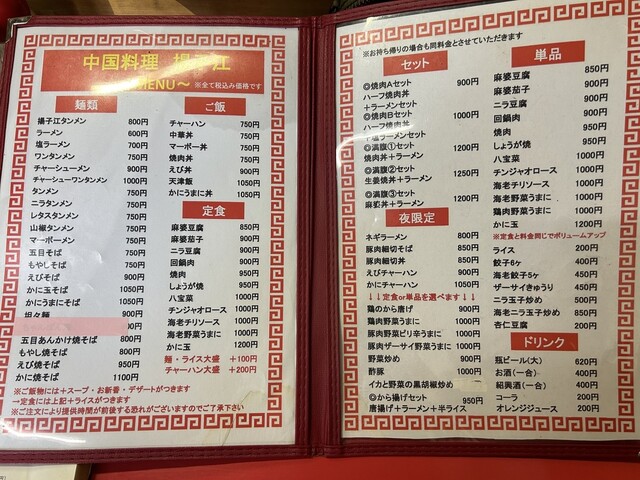 中国料理 揚子江
MENU～ ※全て税込み価格です
麺類
揚子江タンメン 800円
ラーメン 600円
塩ラーメン 700円
ワンタンメン 750円
チャーシューメン 900円
チャーシューワンタンメン 1000円
タンメン 750円
ニラタンメン 750円
レタスタンメン 750円
山椒タンメン 750円
マーボーメン 750円
五目そば 750円
もやしそば 750円
えびそば 900円
かに玉そば 1050円
かにうまにそば 1050円
坦々麺 900円
五目あんかけ焼そば 800円
もやし焼そば 800円
えび焼そば 950円
かに焼そば 1100円
ご飯
チャーハン 750円
中華丼 750円
マーボー丼 750円
焼肉丼 750円
えび丼 900円
天津飯 1050円
かにうまに丼 1050円
定食
麻婆豆腐 850円
麻婆茄子 900円
ニラ豆腐 900円
回鍋肉 900円
焼肉 950円
しょうが焼 950円
八宝菜 1000円
チンジャオロース 1000円
海老チリソース 1000円
海老野菜うまに 1000円
鶏肉野菜うまに 1000円
かに玉 1200円
麺・ライス大盛 +100円
チャーハン大盛 +200円
※ご飯物には+スープ・お新香・デザートがつきます
→定食には上記+ライスがつきます
※ご注文により提供時間が前後する恐れがございますのでご了承下さい
※お持ち帰りの場合も同料金とさせていただきます
セット
◎焼肉Aセット 900円
ハーフ焼肉丼
+ラーメンセット
◎焼肉Bセット 1000円
ハーフ焼肉丼
+塩ラーメンセット
◎満腹①セット 1200円
焼肉丼+ラーメン
◎満腹②セット 1250円
生姜焼丼+ラーメン
◎満腹③セット 1200円
麻婆丼+ラーメン
夜限定
ネギラーメン 850円
豚肉細切そば 850円
豚肉細切丼 850円
えびチャーハン 900円
かにチャーハン 1050円
↓↓定食or単品を選べます↓↓
鶏のから揚げ 900円
鶏肉野菜うまに 1000円
豚肉野菜ピリ辛うまに 1000円
豚肉ザーサイ野菜うまに 1000円
野菜炒め 900円
酢豚 1000円
イカと野菜の黒胡椒炒め
◎から揚げセット 950円
唐揚げ+ラーメン+半ライス
単品
麻婆豆腐 850円
麻婆茄子 900円
ニラ豆腐 900円
回鍋肉 900円
焼肉 950円
しょうが焼 950円
八宝菜 1000円
チンジャオロース 1000円
海老チリソース 1000円
海老野菜うまに 1000円
鶏肉野菜うまに 1000円
かに玉 1200円
※定食と料金同じでボリュームアップ
ライス 200円
餃子6ヶ 400円
海老餃子5ヶ 450円
ザーサイきゅうり 450円
ニラ玉子炒め 500円
海老ニラ玉子炒め
杏仁豆腐 200円
ドリンク
瓶ビール(大) 620円
お酒(一合) 400円
紹興酒(一合) 400円
コーラ 200円
オレンジジュース 200円